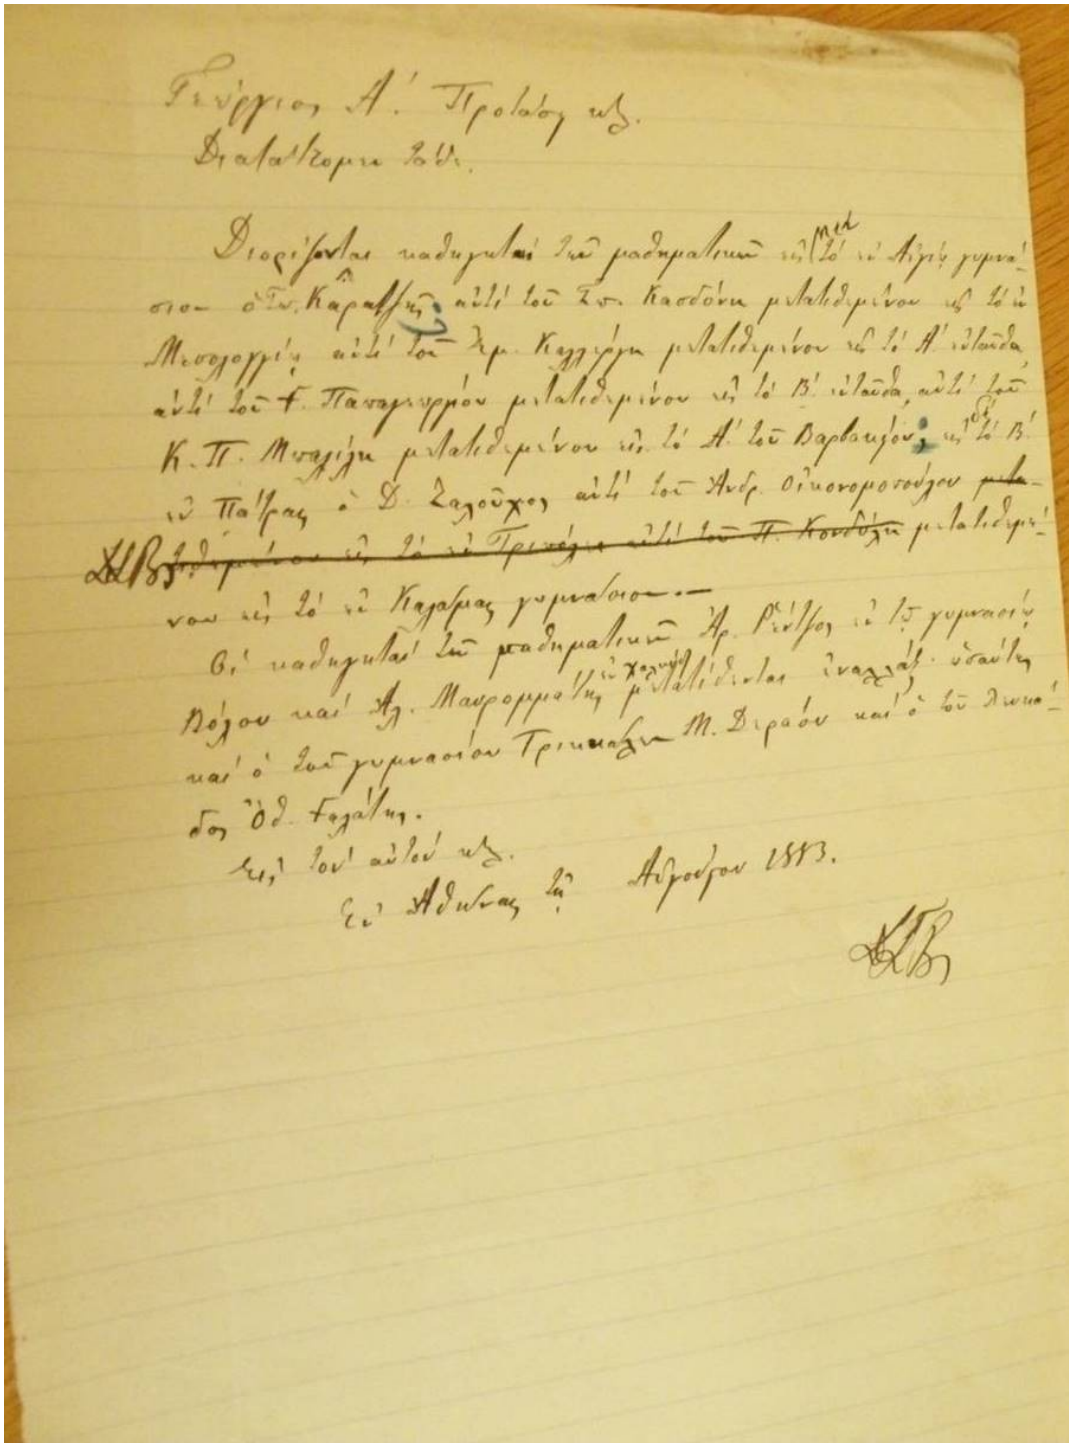 Γεώργιος Α΄. Προτάσει κτλ.
Διατάττομεν τάδε.
Διορίζονται καθηγηταί τῶν μαθηματικῶν εἰς μὲν τὸ ἐν Αἰγίῳ γυμνά-
σιον ὁ Γεώ. Καρατζῆς, ἀντὶ τοῦ Σπ. μετατιθεμένου εἰς τὸ ἐν
Μεσολογγίῳ ἀντὶ τοῦ Καλλέργη μετατιθεμένου εἰς τὸ Α΄ ἐνταῦθα,
ἀντὶ τοῦ Γ. Παπαγεωργίου μετατιθεμένου εἰς τὸ Β΄. ἐνταῦθα, ἀντὶ τοῦ
Κ. Π. μετατιθεμένου εἰς τὸ Α΄ τοῦ Βαρβακείου; εἰς δὲ τὸ Β΄
ἐν Πάτραις ὁ Δ. Ζαλοῦχος ἀντὶ τοῦ Ἀνδρ. Οἰκονομοπούλου μετα-
τιθεμένου εἰς τὸ ἐν Τριπόλει ἀντὶ τοῦ Π. Κονδύλη μετατιθεμέ-
νου εἰς τὸ ἐν Καλάμαις γυμνάσιον.—
Οἱ καθηγηταὶ τῶν μαθηματικῶν Ἀρ. Ῥέντζος ἐν τῷ γυμνασίῳ
Βόλου καὶ Ἀλ. Μαυρομμάτης ἐν Χαλκίδι μετατίθενται ἐναλλάξ· ὡσαύτως
καὶ ὁ τοῦ γυμνασίου Τρικκάλων Μ. καὶ ὁ τοῦ Λευκά-
δος Ὀθ. Γαλάτης.
Εἰς τὸν αὐτὸν κτλ.
Ἐν Ἀθήναις τῇ Αὐγούστου 1883.